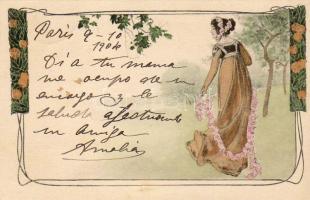 Paris 9-10
1904
Di a tu mama
me ocupo de su
encargo y le
saluda afectuosa
su amiga
Amalia